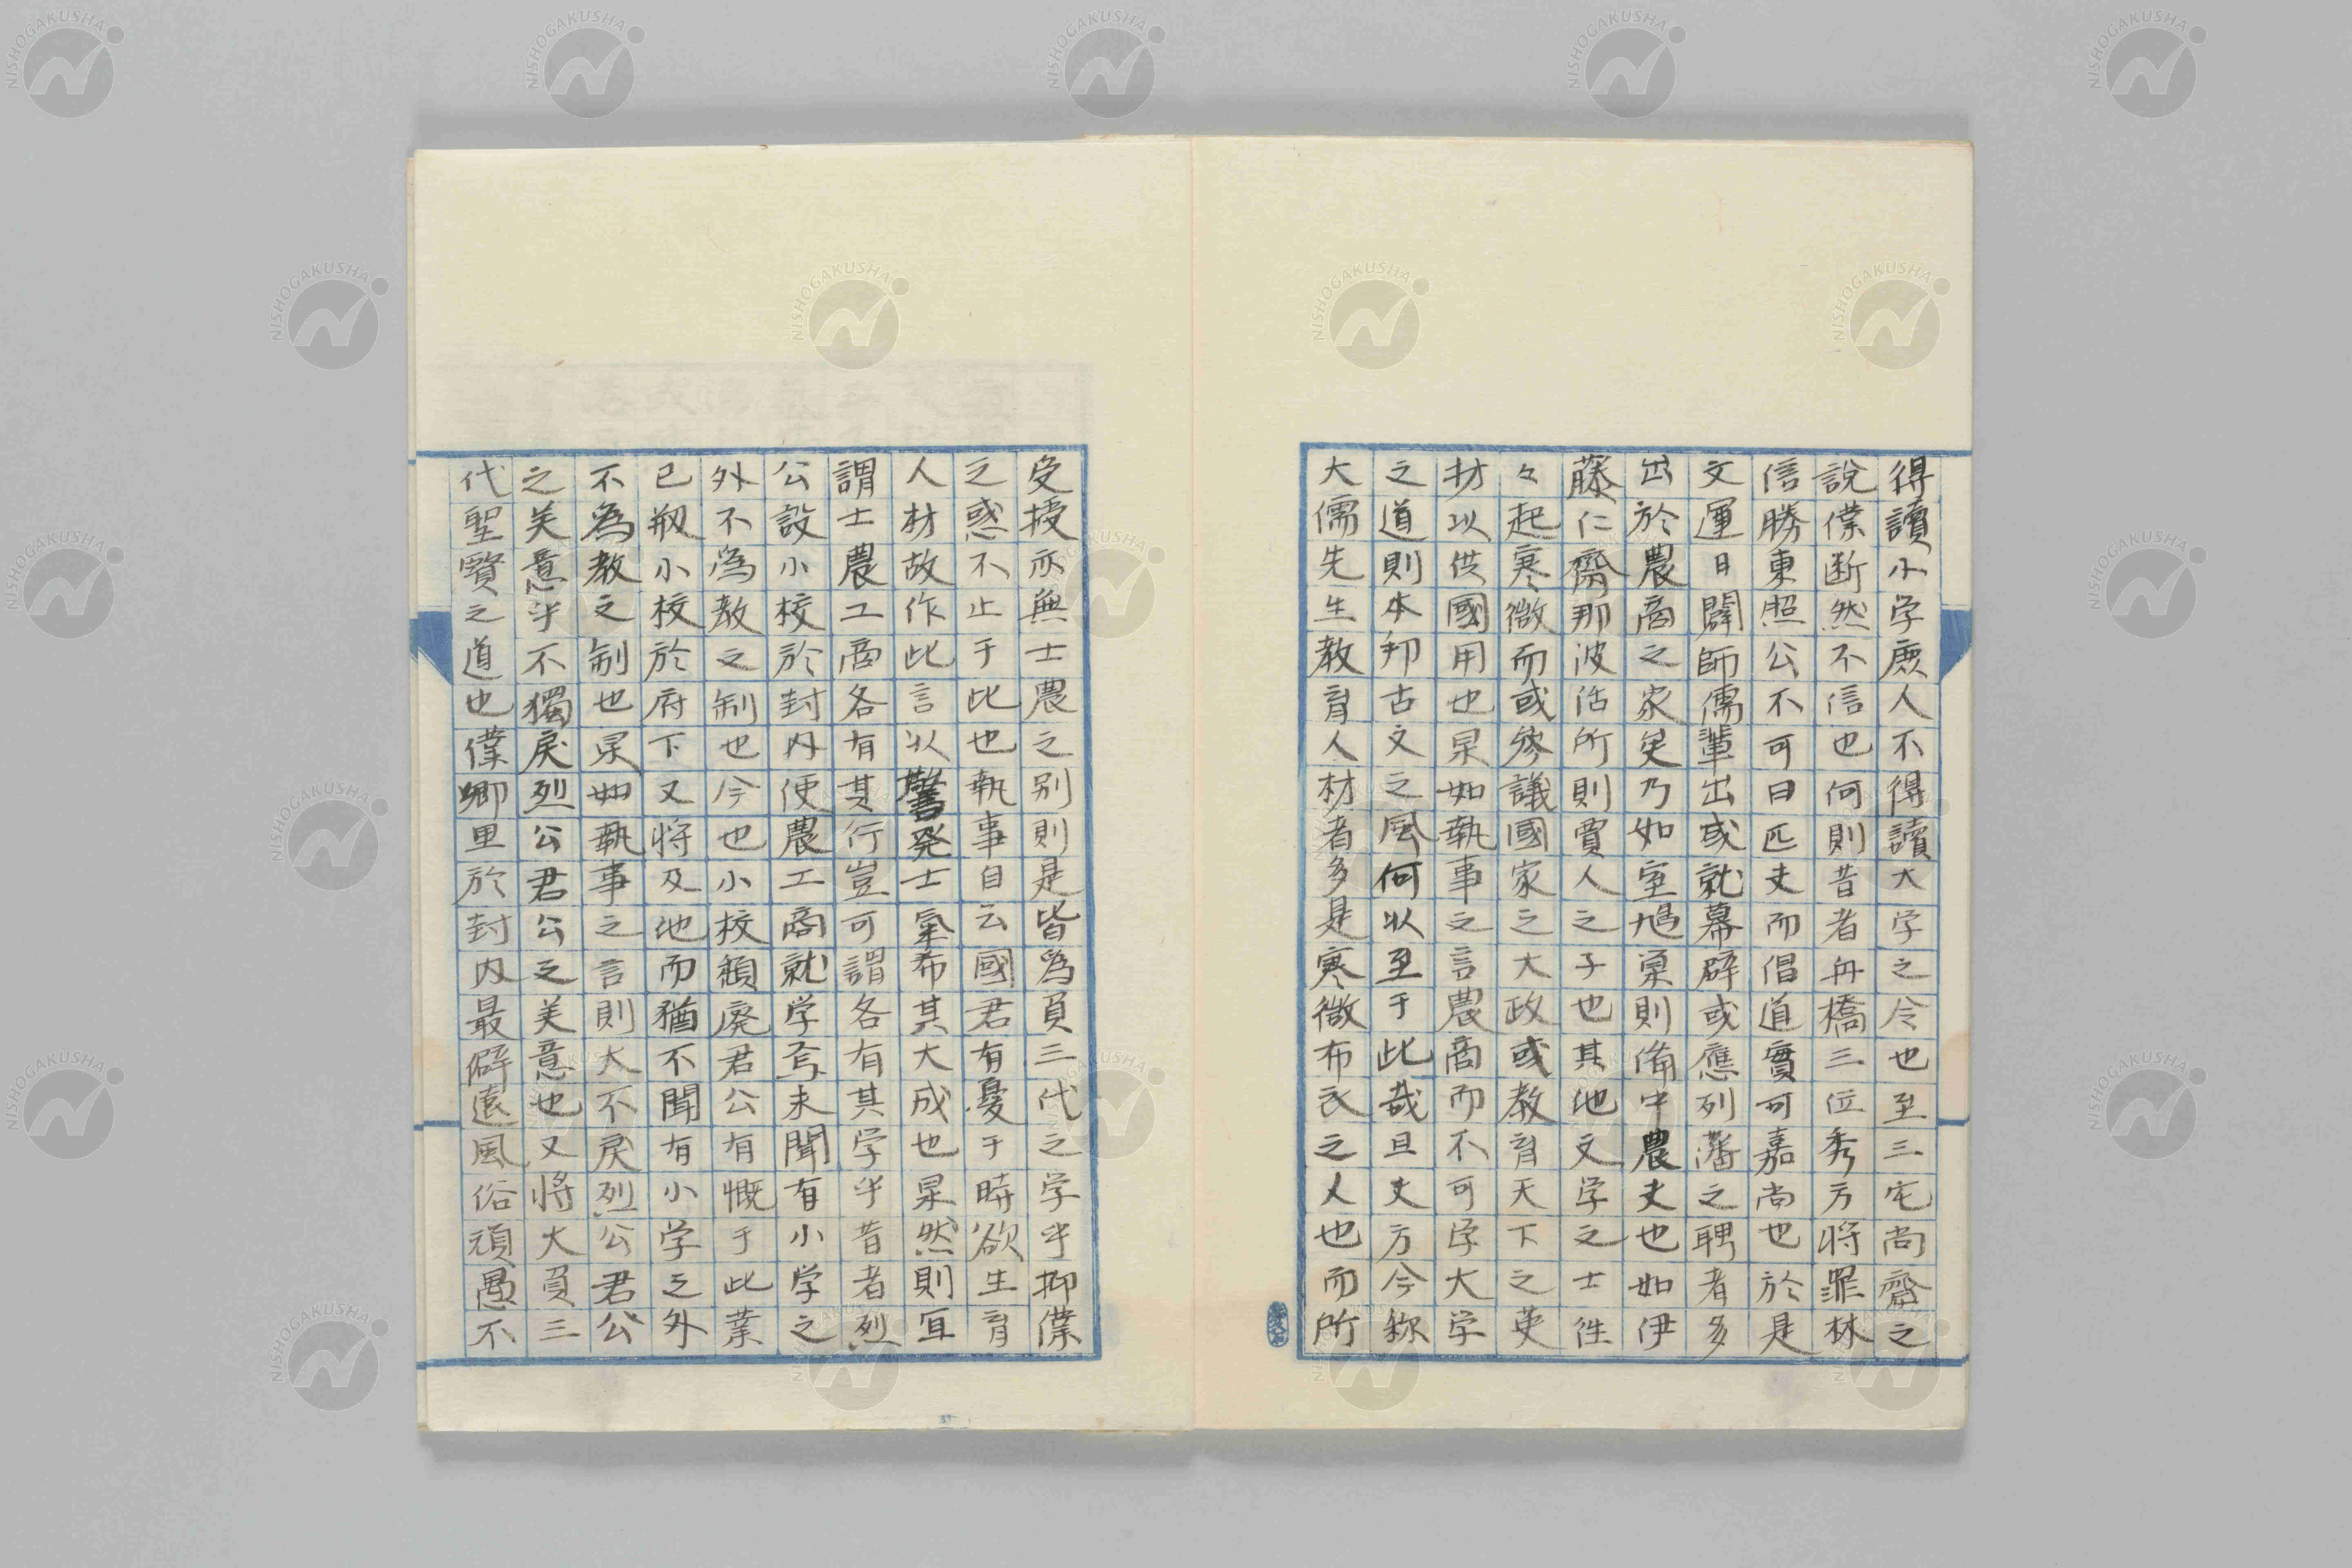 得讀小学庶人不得讀大学之令也至三宅尚齋之
說僕断然不信也何則昔者舟橋三位秀方将罪林
信勝東照公不可曰匹夫而倡道實可嘉尚也於是
文運日闢師儒輩出或就幕辟或應列藩之聘者多
出於農商之家矣乃如室鳩巢則備中農夫也如伊
藤仁齋那波活所則賈人之子也其他文学之士徃
々起寒微而或參議國家之大政或教育天下之英
材以供國用也果如執事之言農商而不可学大学
之道則本邦古文之風何以至于此哉且夫方今称
大儒先生教育人材者多是寒微布衣之人也而所
受授亦無士農之别則是皆為員三代之学乎抑僕
之惑不止于此也執事自云國君有憂于時欲生育
人材故作此言以驚発士氣布其大成也果然則宜
謂士農工商各有其行豈可謂各有其学乎昔者烈
公設小校於封内便農工商就学焉未聞有小学之
外不為教之制也今也小校頽廃君公有慨于此業
已剏小校於府下又将及他而猶不聞有小学之外
不為教之制也果如執事之言則大不戻烈公君公
之美意乎不獨戻烈公君公之美意也又将大員三
代聖賢之道也僕郷里於封内最僻遠風俗頑愚不
NISHOGAKUSHA